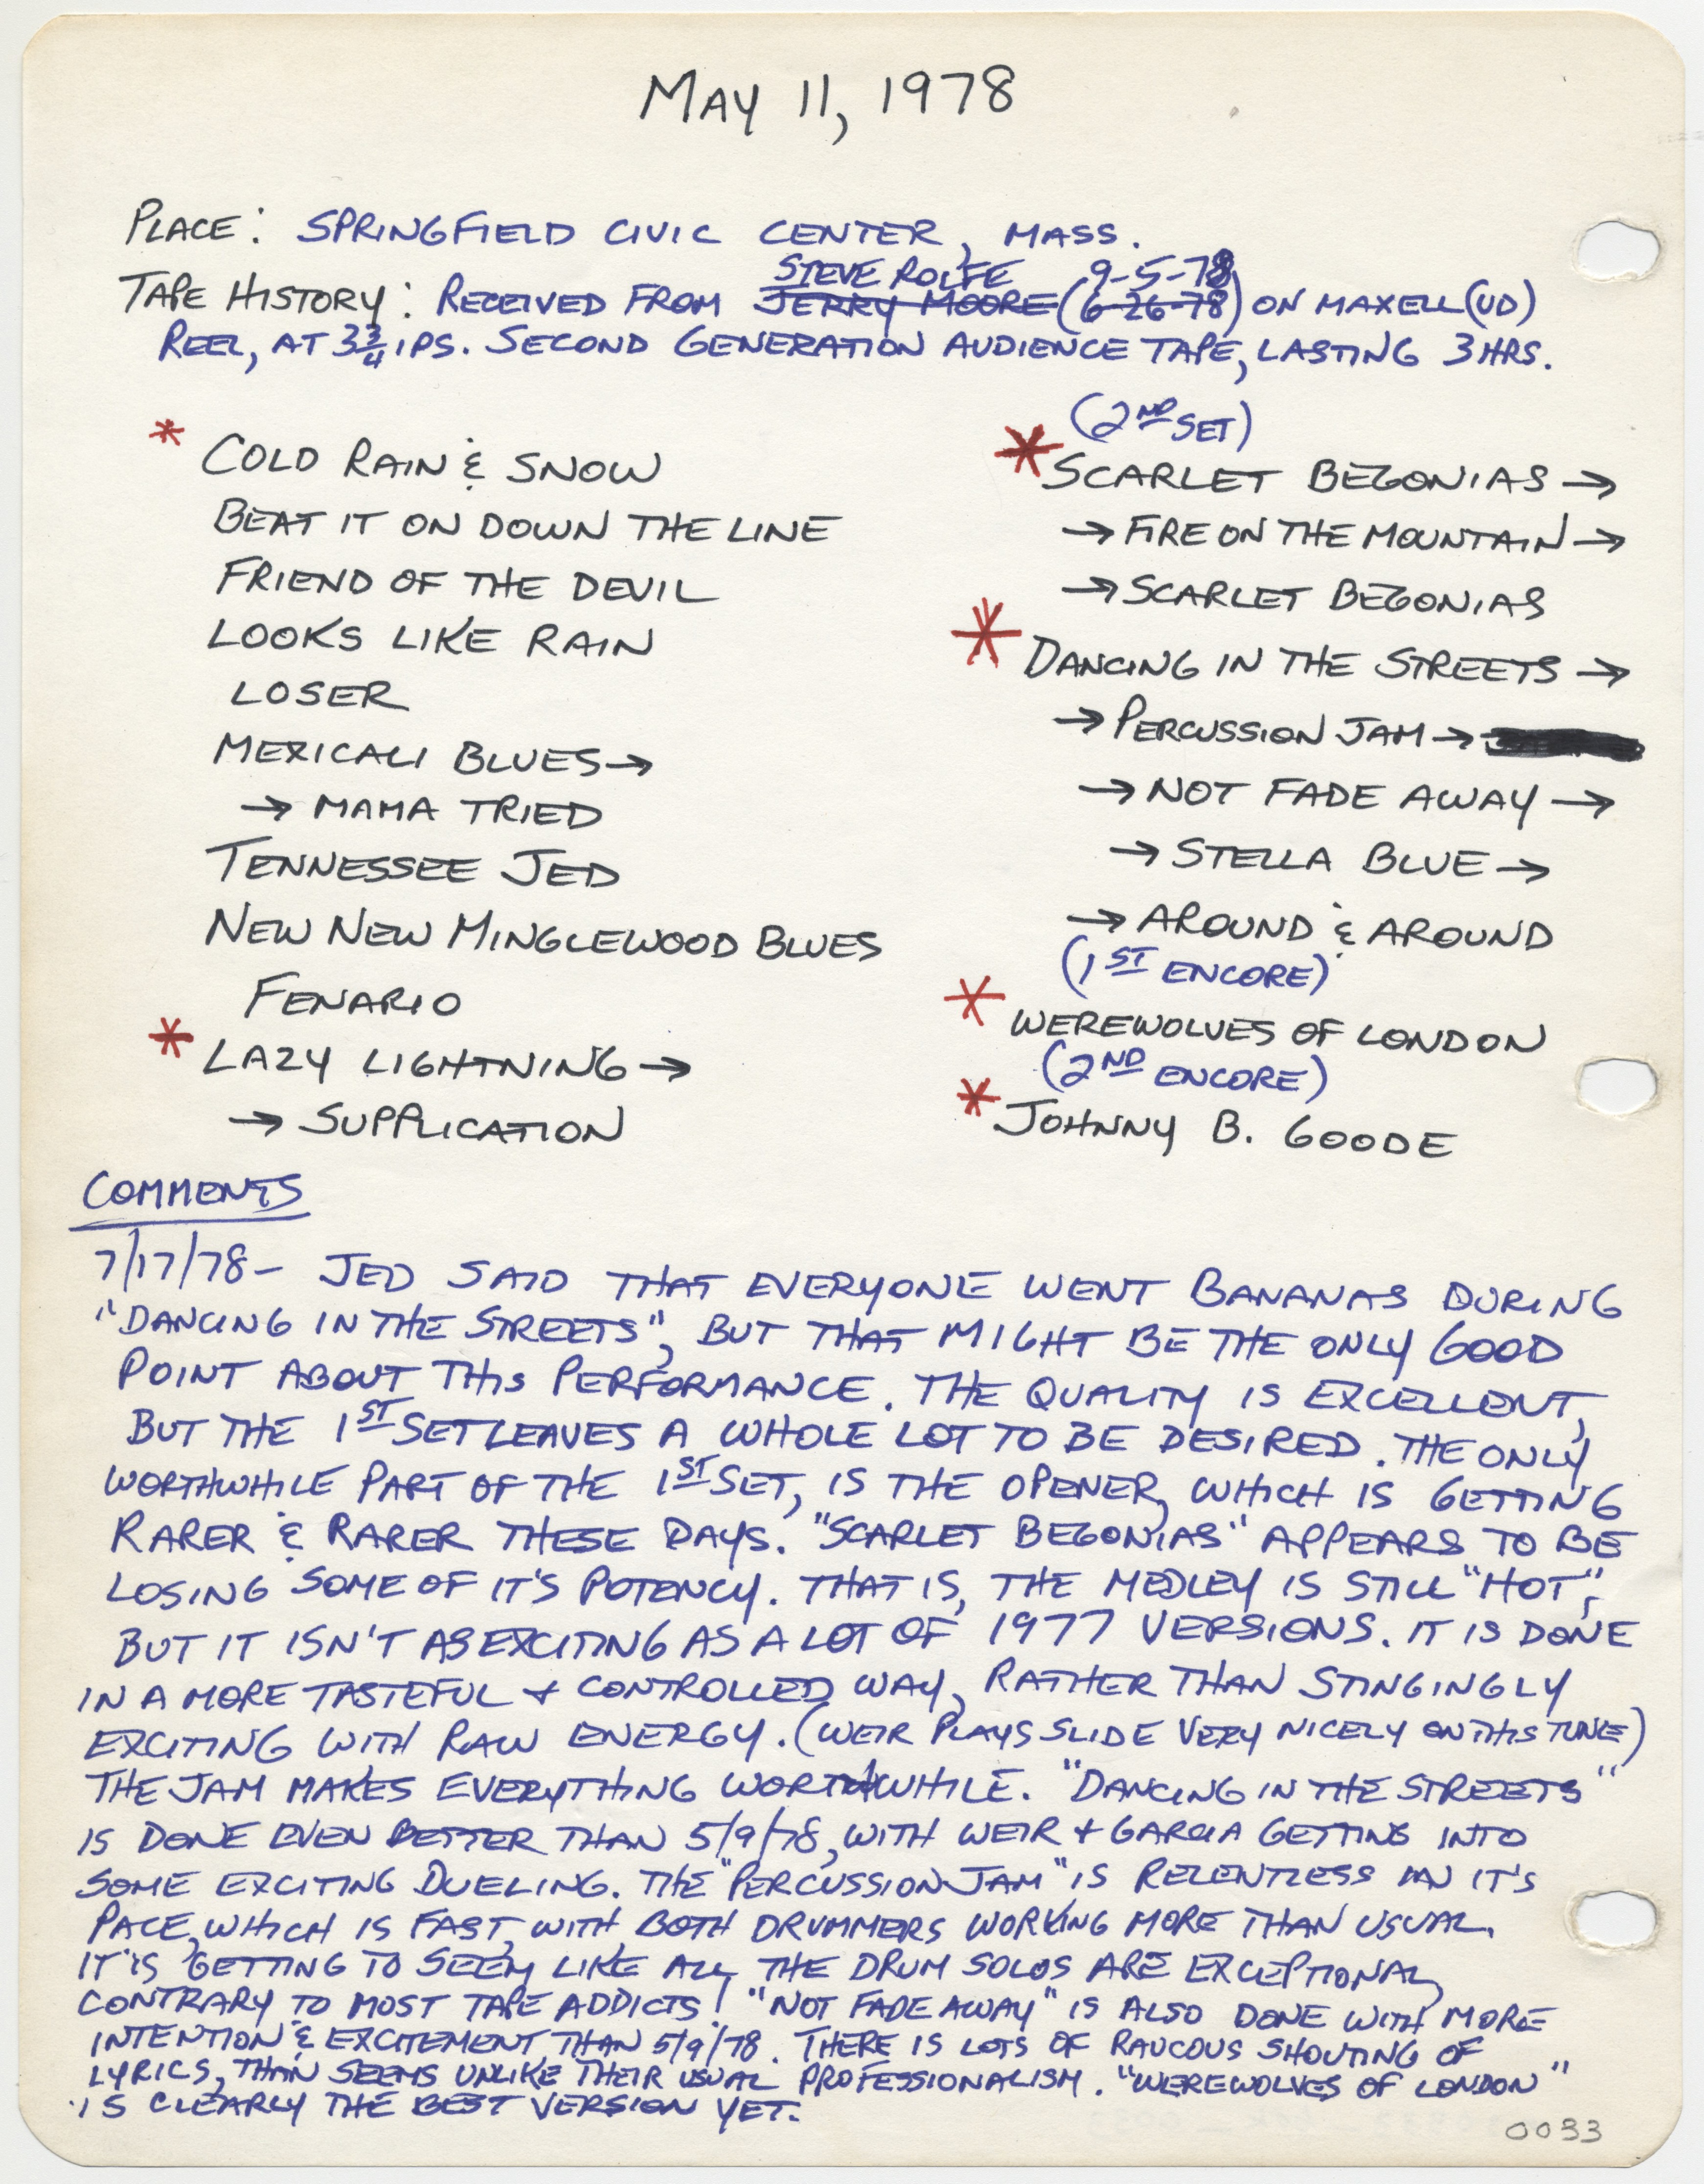 MAY 11, 1978
PLACE: SPRINGFIELD CIVIC CENTER, MASS.
STEVE ROLFE 9-5-78
TAPE HISTORY: RECEIVED FROM JERRY MOORE (6-26-78) ON MAXELL (UD)
REEL, AT 3 3/4 IPS. SECOND GENERATION AUDIENCE TAPE, LASTING 3 HRS.
* COLD RAIN & SNOW
BEAT IT ON DOWN THE LINE
FRIEND OF THE DEVIL
LOOKS LIKE RAIN
LOSER
MEXICALI BLUES →
→ MAMA TRIED
TENNESSEE JED
NEW NEW MINGLEWOOD BLUES
FENARIO
* LAZY LIGHTNING →
→ SUPPLICATION
(2ND SET)
* SCARLET BEGONIAS →
→ FIRE ON THE MOUNTAIN →
→ SCARLET BEGONIAS
* DANCING IN THE STREETS →
→ PERCUSSION JAM →
→ NOT FADE AWAY →
→ STELLA BLUE →
→ AROUND & AROUND
(1ST ENCORE)
* WEREWOLVES OF LONDON
(2ND ENCORE)
* JOHNNY B. GOODE
COMMENTS
7/17/78 - JED SAID THAT EVERYONE WENT BANANAS DURING
"DANCING IN THE STREETS", BUT THAT MIGHT BE THE ONLY GOOD
POINT ABOUT THIS PERFORMANCE. THE QUALITY IS EXCELLENT,
BUT THE 1ST SET LEAVES A WHOLE LOT TO BE DESIRED. THE ONLY
WORTHWHILE PART OF THE 1ST SET, IS THE OPENER, WHICH IS GETTING
RARER & RARER THESE DAYS. "SCARLET BEGONIAS" APPEARS TO BE
LOSING SOME OF IT'S POTENCY. THAT IS, THE MEDLEY IS STILL "HOT",
BUT IT ISN'T AS EXCITING AS A LOT OF 1977 VERSIONS. IT IS DONE
IN A MORE TASTEFUL + CONTROLLED WAY, RATHER THAN STINGINGLY
EXCITING WITH RAW ENERGY. (WEIR PLAYS SLIDE VERY NICELY ON THIS TUNE)
THE JAM MAKES EVERYTHING WORTHWHILE. "DANCING IN THE STREETS"
IS DONE EVEN BETTER THAN 5/9/78, WITH WEIR + GARCIA GETTING INTO
SOME EXCITING DUELING. THE "PERCUSSION JAM" IS RELENTLESS IN IT'S
PACE, WHICH IS FAST, WITH BOTH DRUMMERS WORKING MORE THAN USUAL.
IT IS GETTING TO SEEM LIKE ALL THE DRUM SOLOS ARE EXCEPTIONAL,
CONTRARY TO MOST TAPE ADDICTS! "NOT FADE AWAY" IS ALSO DONE WITH MORE
INTENTION & EXCITEMENT THAN 5/9/78. THERE IS LOTS OF RAUCOUS SHOUTING OF
LYRICS, THAN SEEMS UNLIKE THEIR USUAL PROFESSIONALISM. "WEREWOLVES OF LONDON"
IS CLEARLY THE BEST VERSION YET.
0033